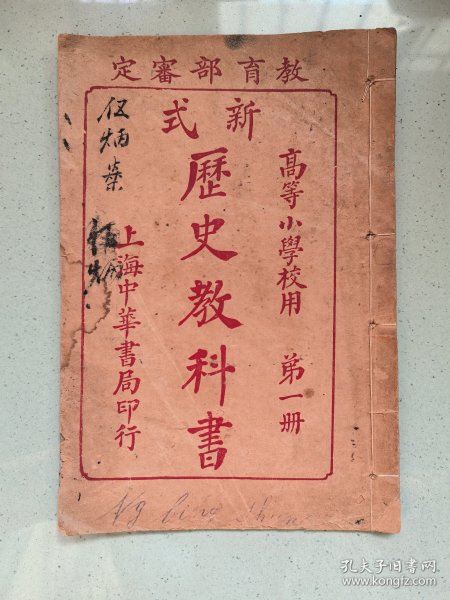 教育部審定
新式
歷史教科書
高等小學校用 第一册
上海中華書局印行
伍炳
孔夫子旧书网
www.kongfz.com